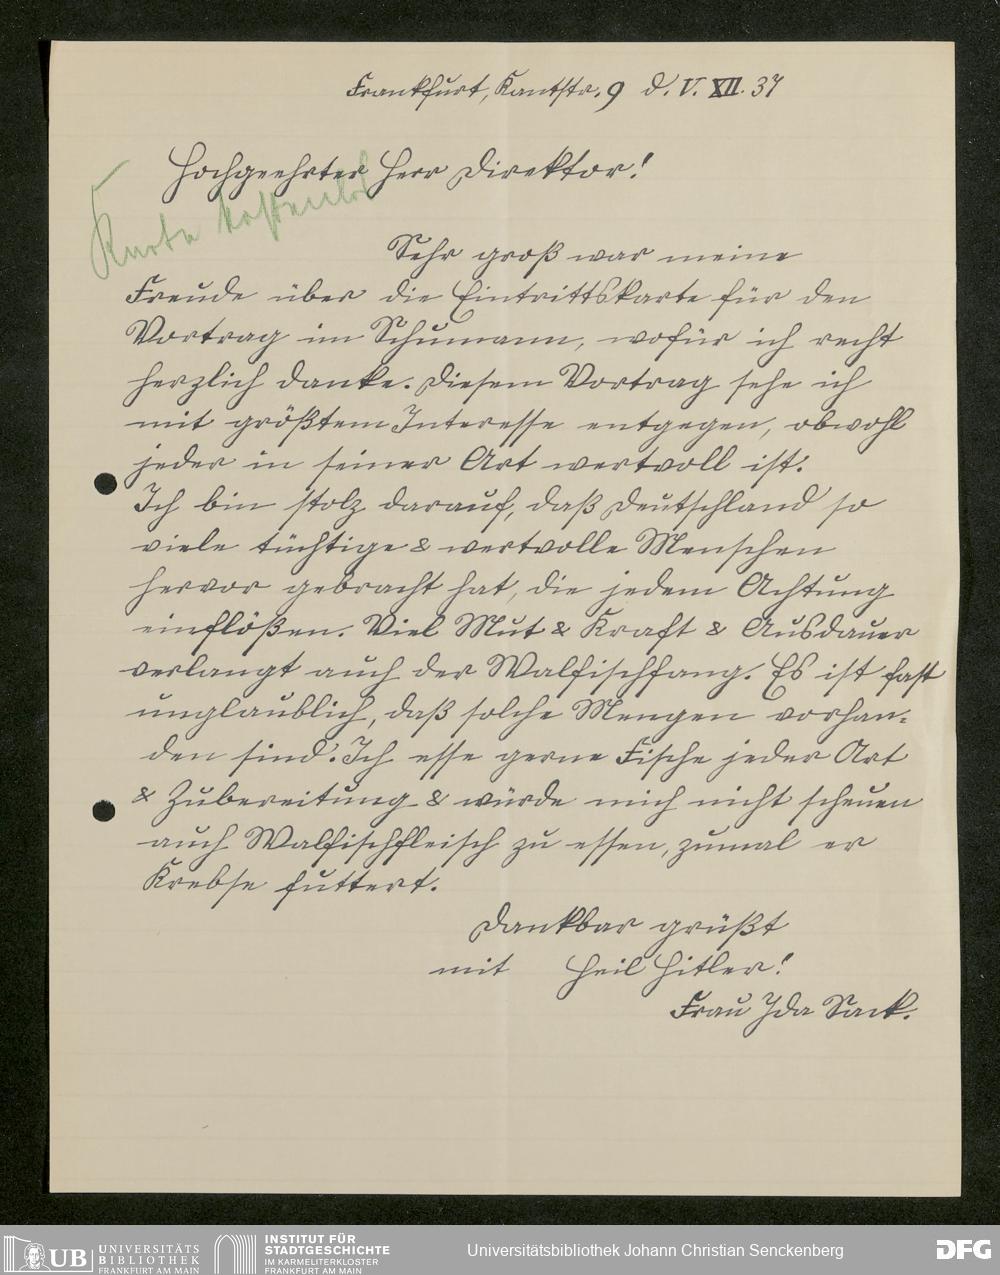 Frankfurt, Kantstr. 9 d. V. XII. 37
Hochgeehrter Herr Direktor!
Karte kostenlos
Sehr groß war meine
Freude über die Eintrittskarte für den
Vortrag im Schumann, wofür ich recht
herzlich danke. Diesem Vortrag sehe ich
mit größtem Interesse entgegen, obwohl
jeder in seiner Art wertvoll ist.
Ich bin stolz darauf, daß Deutschland so
viele tüchtige & wertvolle Menschen
hervor gebracht hat, die jedem Achtung
einflößen. Viel Mut & Kraft & Ausdauer
verlangt auch der Walfischfang. Es ist fast
unglaublich, daß solche Mengen vorhan-
den sind. Ich esse gerne Fische jeder Art
& Zubereitung & würde mich nicht scheuen
auch Walfischfleisch zu essen, zumal er
Krebse futtert.
Dankbar grüßt
mit Heil Hitler!
Frau Ida Sack.
UB UNIVERSITÄTS
BIBLIOTHEK
FRANKFURT AM MAIN
INSTITUT FÜR
STADTGESCHICHTE
IM KARMELITERKLOSTER
FRANKFURT AM MAIN
Universitätsbibliothek Johann Christian Senckenberg
DFG